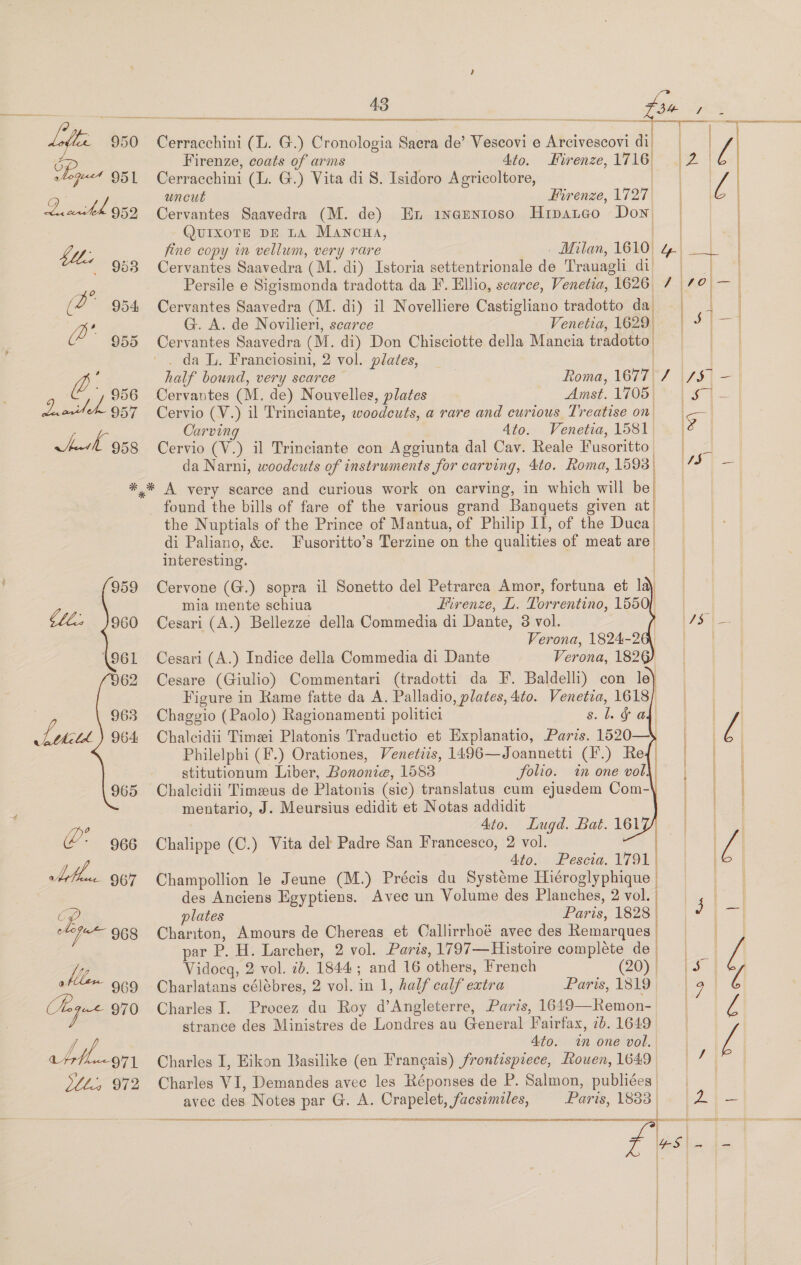 43 £34 1 -
950 Cerracchini (L. G.) Cronologia Sacra de' Vescovi e Arcivescovi di
Firenze, coats of arms 4to. Firenze, 1716 2 6
951 Cerracchini (L. G.) Vita di S. Isidoro Agricoltore,
uncut Firenze, 1727 6
952 Cervantes Saavedra (M. de) En ingenioso Hidalgo Don
Quixote de la Mancha,
fine copy in vellum, very rare Milan, 1610 4 —
953 Cervantes Saavedra (M. di) Istoria settentrionale de Trauagli di
Persile e Sigismonda tradotta da F. Ellio, scarce, Venetia, 1626 1 10 —
954 Cervantes Saavedra (M. di) il Novelliere Castigliano tradotto da
G. A. de Novilieri, scarce Venetia, 1629 5 —
955 Cervantes Saavedra (M. di) Don Chisciotte della Mancia tradotto
da L. Franciosini, 2 vol. plates,
half bound, very scarce Roma, 1677 1 15 —
956 Cervantes (M. de) Nouvelles, plates Amst. 1705 5 —
957 Cervio (V.) il Trinciante, woodcuts, a rare and curious Treatise on
Carving 4to. Venetia, 1581
958 Cervio (V.) il Trinciante con Aggiunta dal Cav. Reale Fusoritto
da Narni, woodcuts of instruments for carving, 4to. Roma, 1593 15 —
*** A very scarce and curious work on carving, in which will be
found the bills of fare of the various grand Banquets given at
the Nuptials of the Prince of Mantua, of Philip II, of the Duca
di Paliano, &c. Fusoritto's Terzine on the qualities of meat are
interesting.
959 Cervone (G.) sopra il Sonetto del Petrarca Amor, fortuna et la
mia mente schiua Firenze, L. Torrentino, 1550
960 Cesari (A.) Bellezze della Commedia di Dante, 3 vol. 15 —
Verona, 1824-26
961 Cesari (A.) Indice della Commedia di Dante Verona, 1826
962 Cesare (Giulio) Commentari (tradotti da F. Baldelli) con le
Figure in Rame fatte da A. Palladio, plates, 4to. Venetia, 1618
963 Chaggio (Paolo) Ragionamenti politici s. l. & a.
964 Chalcidii Timæi Platonis Traductio et Explanatio, Paris. 1520— 6
Philelphi (F.) Orationes, Venetiis, 1496—Joannetti (F.) Re-
stitutionum Liber, Bononiæ, 1583 folio. in one vol.
965 Chalcidii Timæus de Platonis (sic) translatus cum ejusdem Com-
mentario, J. Meursius edidit et Notas addidit
4to. Lugd. Bat. 1617
966 Chalippe (C.) Vita del Padre San Francesco, 2 vol.
4to. Pescia. 1791 6
967 Champollion le Jeune (M.) Précis du Système Hiéroglyphique
des Anciens Egyptiens. Avec un Volume des Planches, 2 vol.
plates Paris, 1828 3 —
968 Chariton, Amours de Chereas et Callirrhoë avec des Remarques
par P. H. Larcher, 2 vol. Paris, 1797—Histoire complète de
Vidocq, 2 vol. ib. 1844; and 16 others, French (20) 5 6
Allen 969 Charlatans célèbres, 2 vol. in 1, half calf extra Paris, 1819 9 6
970 Charles I. Procez du Roy d'Angleterre, Paris, 1649—Remon-
strance des Ministres de Londres au General Fairfax, ib. 1649
4to. in one vol.
971 Charles I, Eikon Basilike (en Français) frontispiece, Rouen, 1649 1 6
972 Charles VI, Demandes avec les Réponses de P. Salmon, publiées
avec des Notes par G. A. Crapelet, facsimiles, Paris, 1833 2 —
£ 45 - -